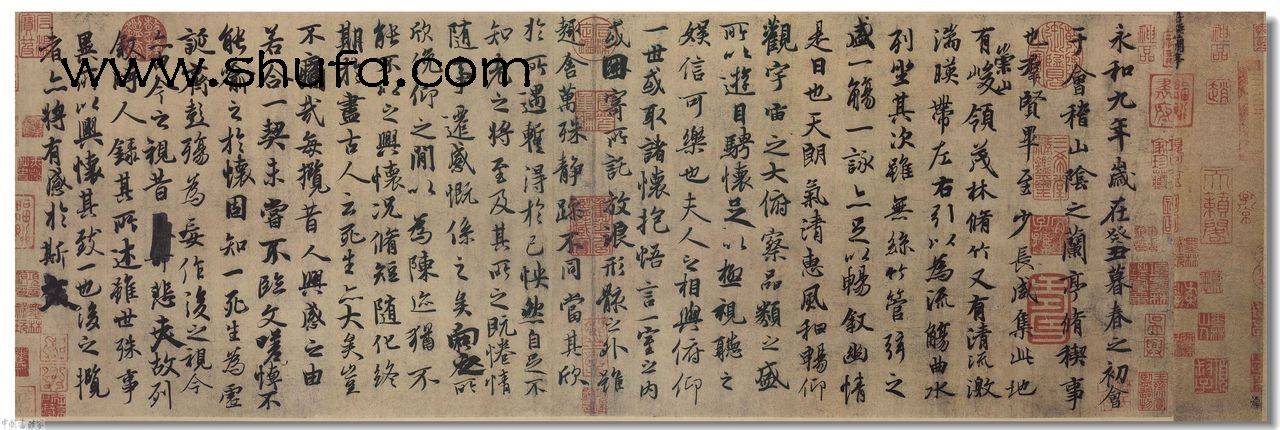 永和九年歲在癸丑暮春之初會
于會稽山陰之蘭亭脩稧事
也羣賢畢至少長咸集此地
有崇山峻領茂林脩竹又有清流激
湍暎帶左右引以為流觴曲水
列坐其次雖無絲竹管弦之
盛一觴一詠亦足以暢叙幽情
是日也天朗氣清惠風和暢仰
觀宇宙之大俯察品類之盛
所以遊目騁懷足以極視聽之
娛信可樂也夫人之相與俯仰
一世或取諸懷抱悟言一室之內
或因寄所託放浪形骸之外雖
趣舍萬殊静躁不同當其欣
於所遇暫得於己怏然自足不
知老之將至及其所之既惓情
隨事遷感慨係之矣向之所
欣俛仰之閒以為陳迹猶不
能不以之興懷況脩短隨化終
期於盡古人云死生亦大矣豈
不痛哉每攬昔人興感之由
若合一契未嘗不臨文嗟悼不
能喻之於懷固知一死生為虛
誕齊彭殤為妄作後之視今
亦由今之視昔悲夫故列
叙時人錄其所述雖世殊事
異所以興懷其致一也後之攬
者亦將有感於斯文
www.shufa.com